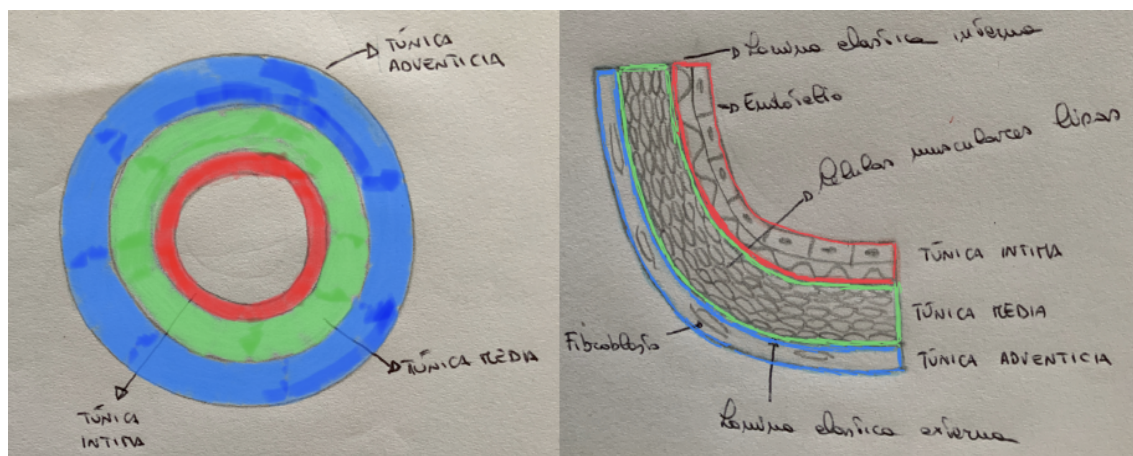 TÚNICA
ADVENTICIA
TÚNICA MÉDIA
TÚNICA
INTIMA
Lamina elastica interna
Endotelio
Celulas musculares lisas
TÚNICA INTIMA
TÚNICA MEDIA
TÚNICA ADVENTICIA
Fibroblasto
Lamina elastica externa